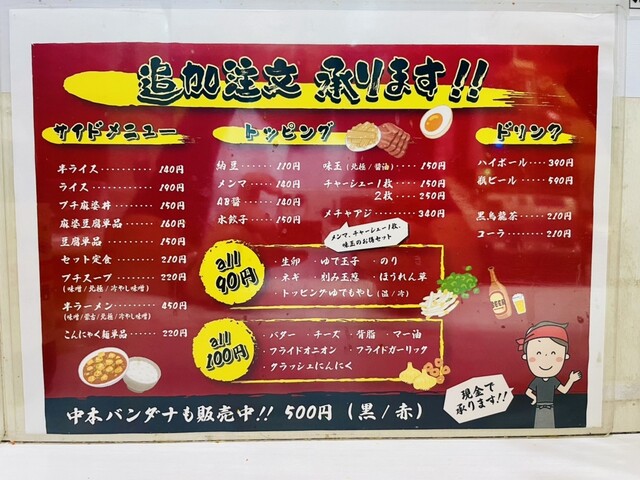 追加注文 承ります!!
サイドメニュー
半ライス・・・・・・・・・・・140円
ライス・・・・・・・・・・・・・190円
プチ麻婆丼・・・・・・・・・150円
麻婆豆腐単品・・・・・・・160円
豆腐単品・・・・・・・・・・・150円
セット定食・・・・・・・・・210円
プチスープ・・・・・・・・・220円
(味噌/北極/冷やし味噌)
半ラーメン・・・・・・・・・450円
(味噌/蒙古/北極/冷やし味噌)
こんにゃく麺単品・・・220円
トッピング
納豆・・・・・・110円
メンマ・・・・140円
AB醤・・・・・140円
水餃子・・・・150円
味玉(北極/醤油)・・・・150円
チャーシュー1枚・・・・150円
2枚・・・・250円
メチャアジ・・・・・・・・・340円
メンマ、チャーシュー1枚、
味玉のお得セット
all
90円
・生卵 ・ゆで玉子 ・のり
・ネギ ・刻み玉葱 ・ほうれん草
・トッピングゆでもやし(温/冷)
all
100円
・バター ・チーズ ・背脂 ・マー油
・フライドオニオン ・フライドガーリック
・クラッシュにんにく
ドリンク
ハイボール・・・・390円
瓶ビール・・・・・・590円
黒烏龍茶・・・・・・210円
コーラ・・・・・・・・210円
BEER
現金で
承ります!!
中本バンダナも販売中!! 500円(黒/赤)